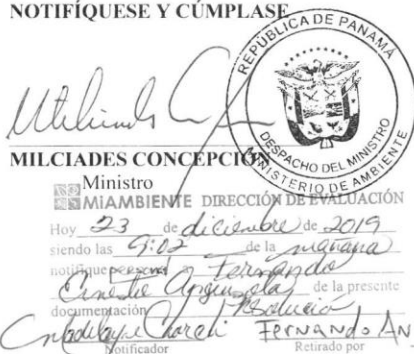 NOTIFÍQUESE Y CÚMPLASE
REPÚBLICA DE PANAMÁ
DESPACHO DEL MINISTRO
MINISTERIO DE AMBIENTE
MILCIADES CONCEPCIÓN
Ministro
MiAMBIENTE DIRECCIÓN DE EVALUACIÓN
Hoy 23 de diciembre de 2019
siendo las 9:02 de la mañana
notifique a Fernando
de la presente
documentación Resolución
Fernando An.
Notificador Retirado por